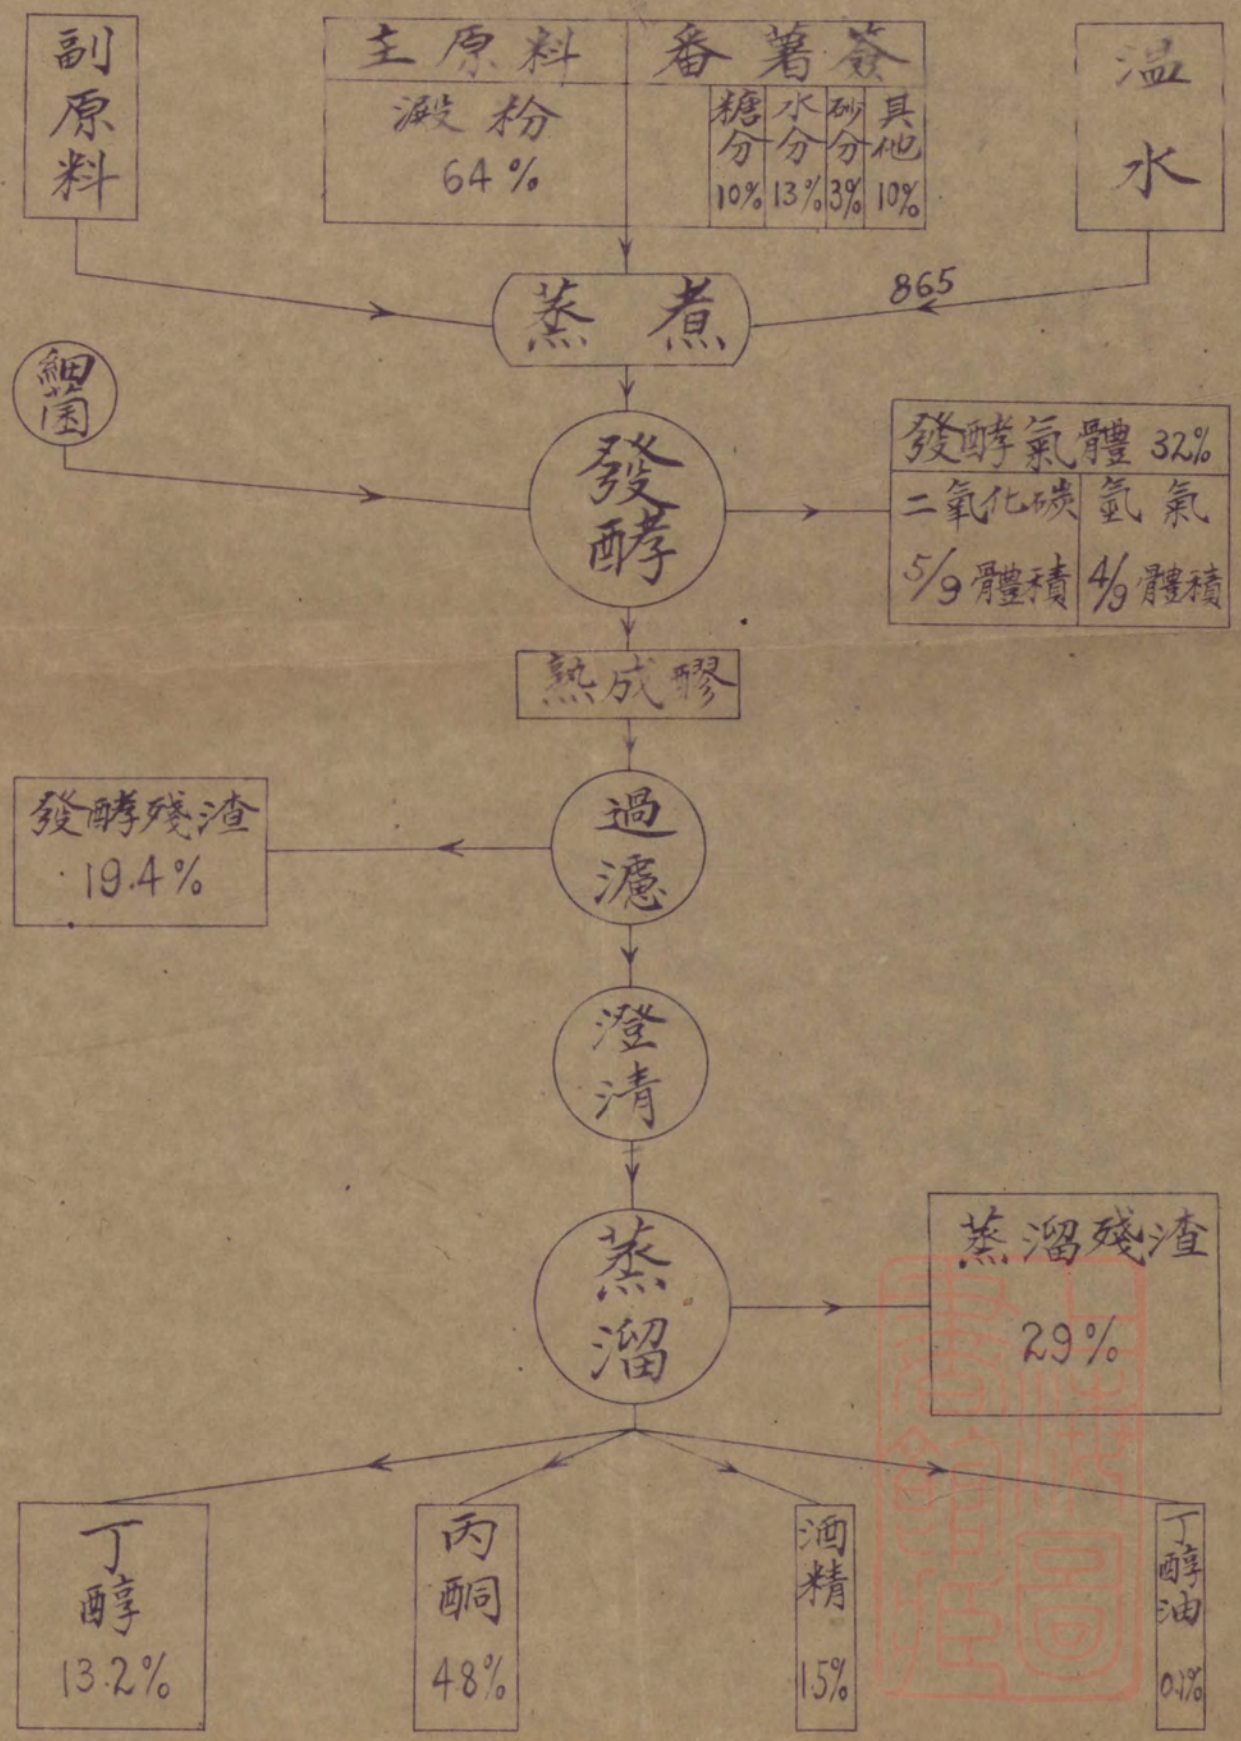 副原料
主原料 番薯簽
澱粉
64%
糖分 10%
水分 13%
砂分 3%
其他 10%
溫水
蒸煮
865
細菌
發酵
發酵氣體 32%
二氧化碳 氫氣
5/9體積 4/9體積
熟成醪
過濾
發酵殘渣
19.4%
澄清
蒸溜
蒸溜殘渣
29%
丁醇
13.2%
丙酮
4.8%
酒精
1.5%
丁醇油
0.1%